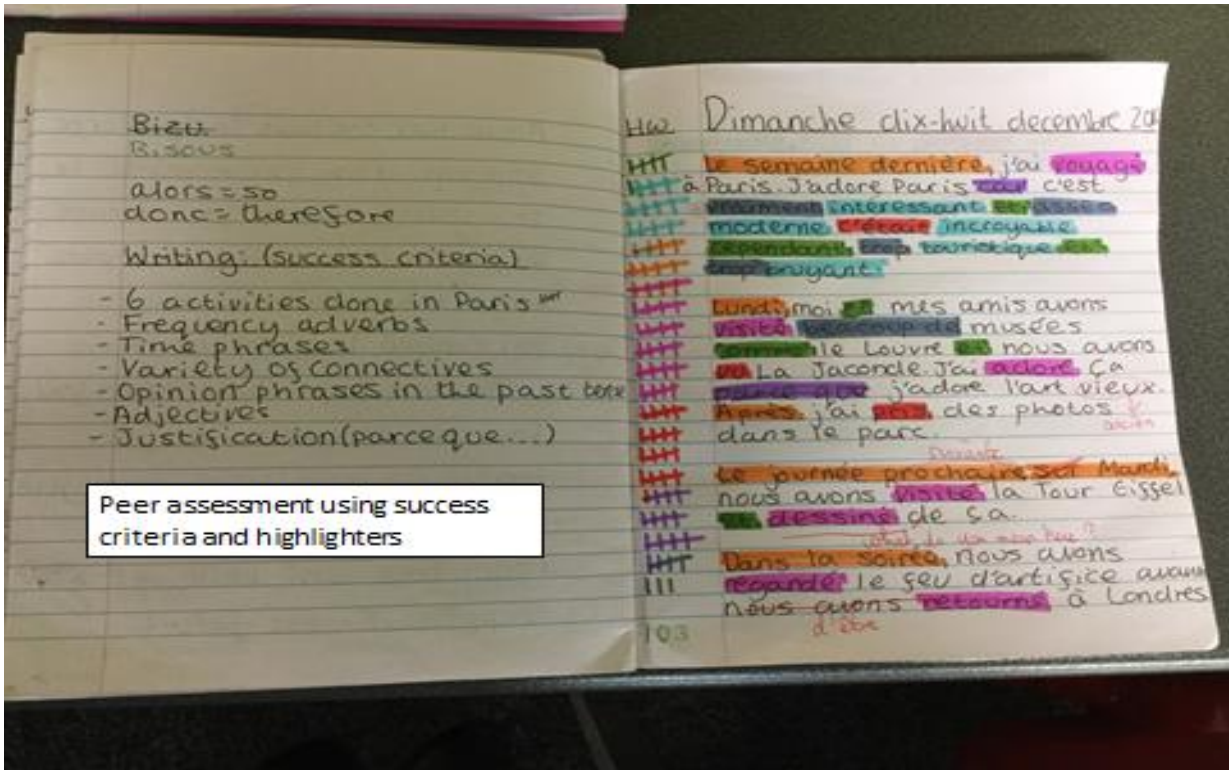 Bizu
Bisous
alors = so
donc = therefore
Writing: (success criteria)
- 6 activities done in Paris
- Frequency adverbs
- Time phrases
- Variety of connectives
- Opinion phrases in the past
- Adjectives
- Justification (parce que...)
Peer assessment using success
criteria and highlighters
HW Dimanche dix-huit decembre
Le semaine dernière, j'ai voyagé
à Paris. J'adore Paris car c'est
vraiment intéressant et assez
moderne. C'était incroyable
cependant, trop touristique et
trop bruyant.
Lundi, moi et mes amis avons
visité beaucoup de musées
comme le Louvre et nous avons
vu La Jaconde. J'ai adoré ça
parce que j'adore l'art vieux.
ancien
Après, j'ai pris des photos
dans le parc.
suivante
Le journée prochaine, sur Mardi,
nous avons visité la Tour Eiffel
et dessiné de ça.
Dans la soirée, nous avons
regardé le feu d'artifice avant
nous avons retourné à Londres
d'être
103